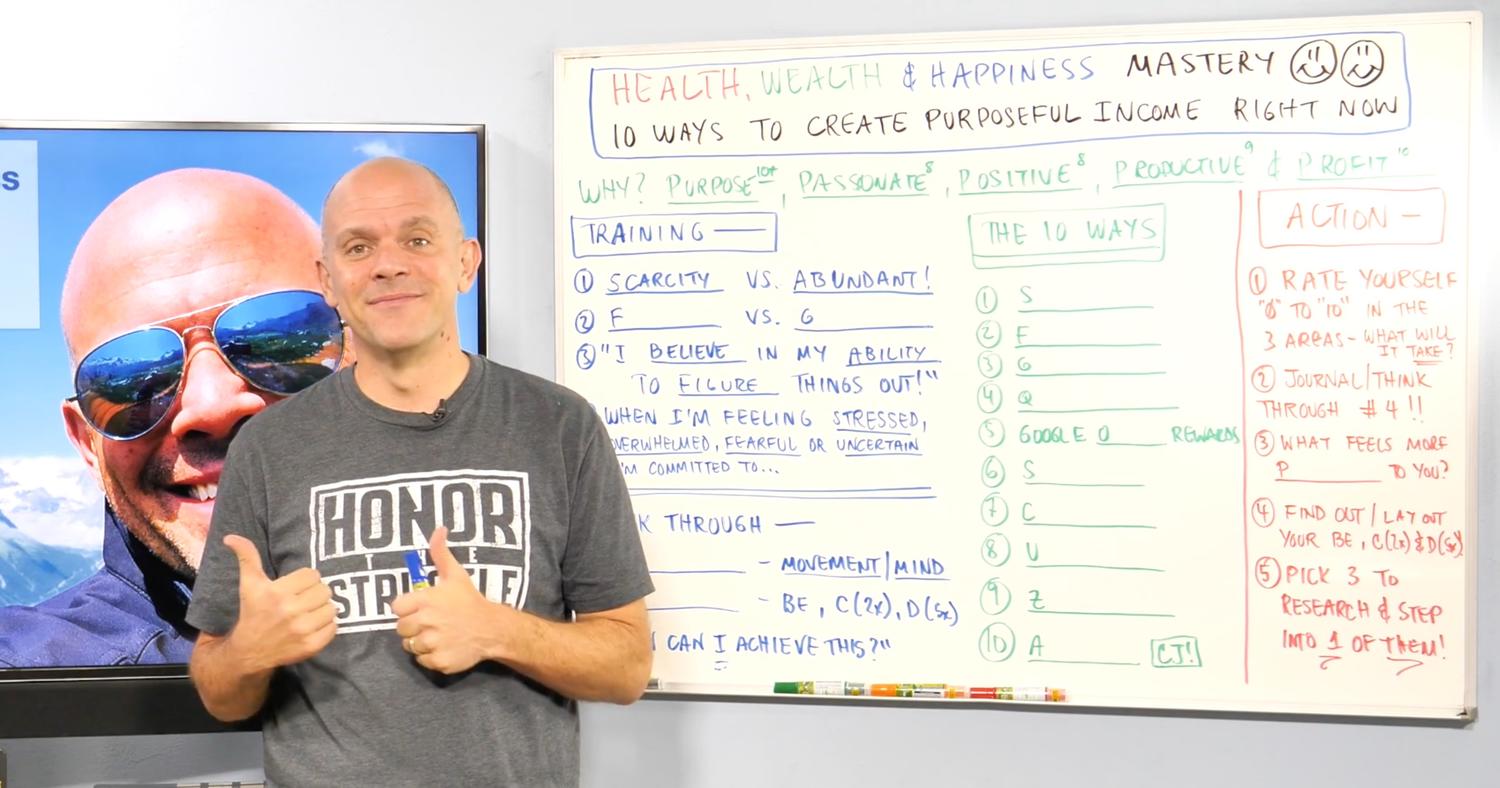 s
HONOR
THE
HEALTH, WEALTH & HAPPINESS MASTERY
10 WAYS TO CREATE PURPOSEFUL INCOME RIGHT NOW
WHY? PURPOSE 10+, PASSIONATE 8, POSITIVE 8, PRODUCTIVE 9 & PROFIT 10
TRAINING —
① SCARCITY VS. ABUNDANT!
② F______ VS. G______
③ "I BELIEVE IN MY ABILITY
TO FIGURE THINGS OUT!"
WHEN I'M FEELING STRESSED,
OVERWHELMED, FEARFUL OR UNCERTAIN
I'M COMMITTED TO...
K THROUGH —
______ - MOVEMENT/MIND
______ - BE, C(2x), D(5x)
CAN I ACHIEVE THIS?"
THE 10 WAYS
① S______
② F______
③ G______
④ Q______
⑤ GOOGLE O______ REWARDS
⑥ S______
⑦ C______
⑧ U______
⑨ Z______
⑩ A______ CJ!
ACTION —
① RATE YOURSELF
"0" TO "10" IN THE
3 AREAS - WHAT WILL
IT TAKE?
② JOURNAL/THINK
THROUGH #4!!
③ WHAT FEELS MORE
P______ TO YOU?
④ FIND OUT/LAY OUT
YOUR BE, C(2x) & D(5x)
⑤ PICK 3 TO
RESEARCH & STEP
INTO 1 OF THEM!